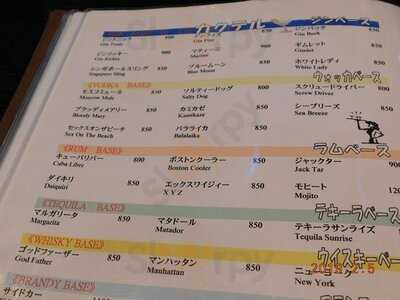 カクテル ジンベース
ジントニック 850 850 ジンバック 850
Gin Tonic Gin Fizz Gin Buck
ジンリッキー 850 マティーニ 850 ギムレット 850
Gin Rickey Marine Gimlet
シンガポールスリング 850 ブルームーン 850 ホワイトレディ 850
Singapore Sling Blue Moon White Lady
《VODKA BASE》 ウォッカベース
モスコミュール 850 ソルティードッグ 850 スクリュードライバー 850
Moscow Mule Salty Dog Screw Driver
ブラッディメアリー 850 カミカゼ 850 シーブリーズ 850
Bloody Mary Kamikaze Sea Breeze
セックスオンザビーチ 850 バラライカ 850
Sex On The Beach Balalaika
《RUM BASE》 ラムベース
キューバリバー 800 ボストンクーラー 850 ジャックター 900
Cuba Libre Boston Cooler Jack Tar
ダイキリ 850 エックスワイジィー 850 モヒート
Daiquiri X Y Z Mojito
《TEQUILA BASE》 テキーラベース
マルガリータ 850 マタドール 850 テキーラサンライズ
Margarita Matador Tequila Sunrise
《WHISKY BASE》 ウイスキーベース
ゴッドファーザー 850 マンハッタン 850
God Father Manhattan New York
《BRANDY BASE》
サイドカー